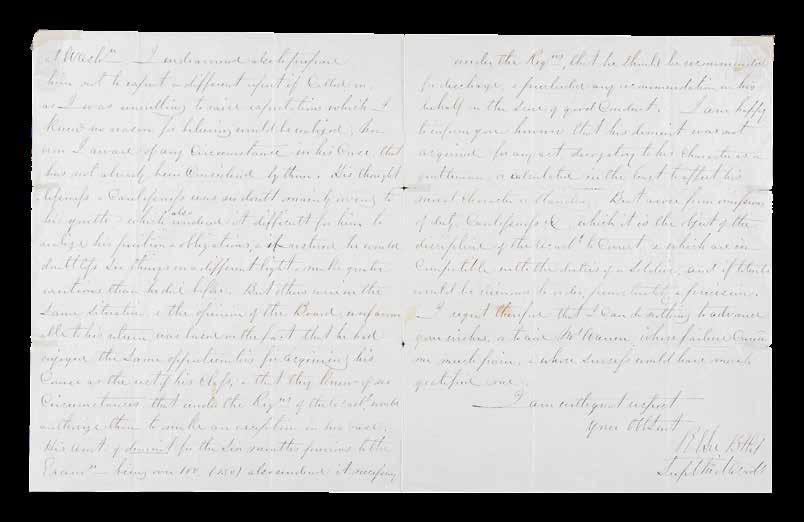 at Wash.ⁿ I endeavoured also to prepare
him not to expect a different report if Called on
as I was unwilling to raise expectations which I
knew no reason for believing would be realized. Nor
am I aware of any Circumstance in his Case, that
has not already been Considered by them. His thought
lessness & Carelessness was no doubt mainly owing to
his youth which also rendered it difficult for him to
realize his position & obligations, & if restored he would
doubtless see things in a different light & make greater
exertions than he did before. But others were in the
Same Situation & the opinion of the Board unfavor
able to his return was based on the fact that he had
enjoyed the Same opportunities for acquiring his
Course as the rest of his Class, & that they knew of no
Circumstances that under the Regⁿˢ of the Acadʸ would
authorize them to make an exception in his case.
His amt of demerit for the Six months previous to the
Examⁿ being over 100 also rendered it necessary
under the Regⁿˢ, that he should be recommended
for discharge & precluded any recommendation in his
behalf on the Score of good Conduct. I am happy
to inform you however that his demerit was not
acquired for any act derogatory to his Character as a
gentleman, or calculated in the least to affect his
moral character or standing. But arose from omissions
of duty, Carelessness &c, which it is the object of the
discipline of the Acadʸ to Correct, & which are in
Compatible with the duties of a Soldier, and if tolerated
would be ruinous to order, punctuality & precision.
I regret therefore that I can do nothing to advance
your wishes, or to aid Mr Warren, whose failure Caused
me much pain, & whose success would have been a
grateful one.
I am with great respect
Your Obt Servt
R E Lee
Supt Mil. Acad